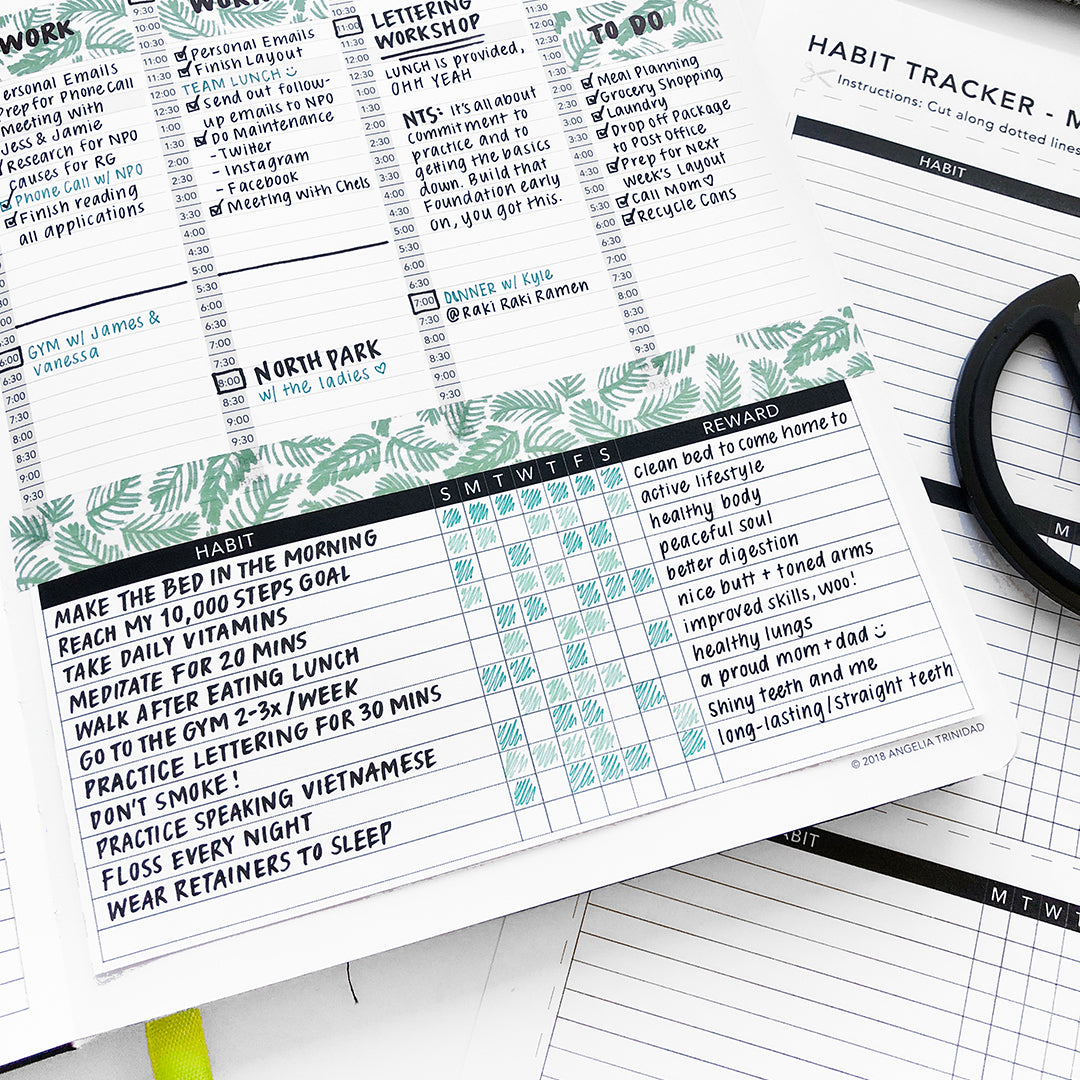 WORK
Personal Emails
Prep for Phone Call
Meeting with
Jess & Jamie
Research for NPO
causes for RG
Phone Call w/ NPO
Finish reading
all applications
6:00
GYM w/ James &
vanessa
6:30
7:00
7:30
8:00
8:30
9:00
9:30
WORK
9:30
10:00
10:30
11:00
11:30
12:00
12:30
1:00
1:30
2:00
2:30
3:00
3:30
4:00
4:30
5:00
5:30
6:00
6:30
7:00
7:30
8:00
8:30
9:00
9:30
Personal Emails
Finish Layout
TEAM LUNCH
Send out follow-
up emails to NPO
Do Maintenance
- Twitter
- Instagram
- Facebook
Meeting with Chels
8:00
NORTH PARK
w/ the ladies ♡
8:30
9:00
9:30
LETTERING
WORKSHOP
11:00
LUNCH is provided,
OHH YEAH
NTS: it's all about
commitment to
practice and to
getting the basics
down. Build that
Foundation early
on, you got this.
7:00
DINNER w/ Kyle
@Raki Raki Ramen
7:30
8:00
8:30
9:00
9:30
TO DO
Meal Planning
Grocery Shopping
Laundry
Drop off Package
to Post Office
Prep for Next
week's Layout
Call Mom ♡
Recycle Cans
HABIT S M T W T F S REWARD
MAKE THE BED IN THE MORNING clean bed to come home to
REACH MY 10,000 STEPS GOAL active lifestyle
TAKE DAILY VITAMINS healthy body
MEDITATE FOR 20 MINS peaceful soul
WALK AFTER EATING LUNCH better digestion
GO TO THE GYM 2-3x/WEEK nice butt + toned arms
PRACTICE LETTERING FOR 30 MINS improved skills, woo!
DON'T SMOKE! healthy lungs
PRACTICE SPEAKING VIETNAMESE a proud mom + dad
FLOSS EVERY NIGHT shiny teeth and me
WEAR RETAINERS TO SLEEP long-lasting/straight teeth
© 2018 ANGELIA TRINIDAD
HABIT TRACKER - M
Instructions: Cut along dotted lines
HABIT
M
HABIT
M T W T